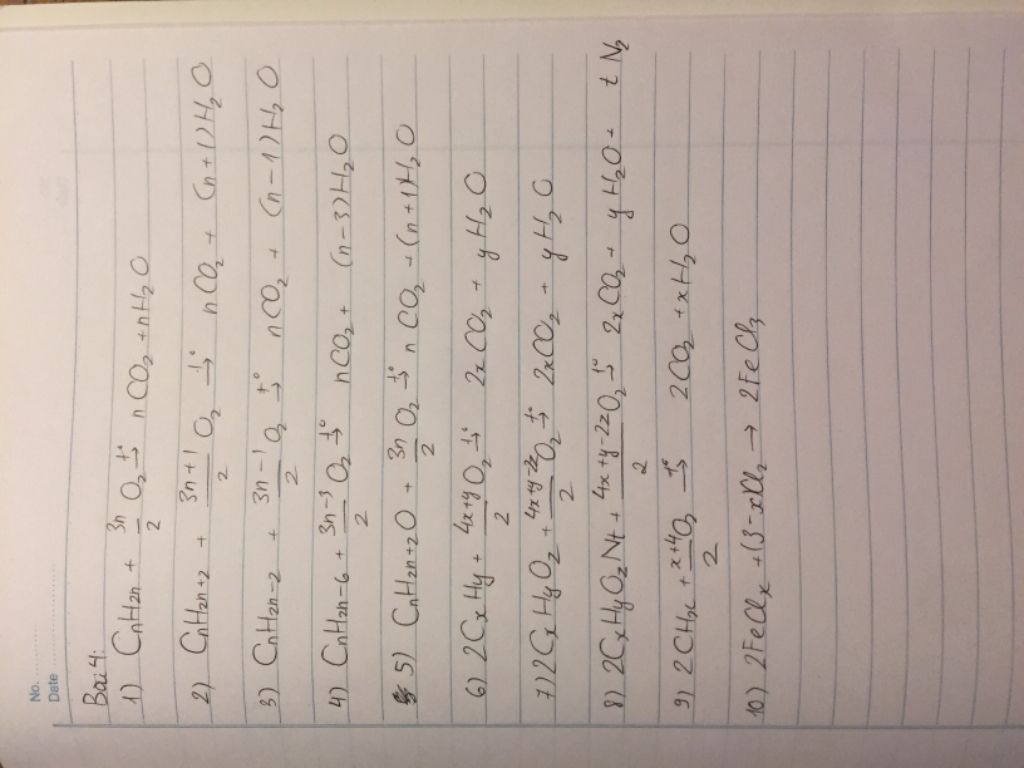 No. ..........
Date ..........
Bài 4:
1) CnH2n + 3n/2 O2 →t° nCO2 + nH2O
2) CnH2n+2 + 3n+1/2 O2 →t° nCO2 + (n+1)H2O
3) CnH2n-2 + 3n-1/2 O2 →t° nCO2 + (n-1)H2O
4) CnH2n-6 + 3n-3/2 O2 →t° nCO2 + (n-3)H2O
5) CnH2n+2O + 3n/2 O2 →t° nCO2 + (n+1)H2O
6) 2CxHy + 4x+y/2 O2 →t° 2xCO2 + yH2O
7) 2CxHyOz + 4x+y-2z/2 O2 →t° 2xCO2 + yH2O
8) 2CxHyOzNt + 4x+y-2z/2 O2 →t° 2xCO2 + yH2O + tN2
9) 2CHx + x+4/2 O2 →t° 2CO2 + xH2O
10) 2FeClx + (3-x)Cl2 → 2FeCl3